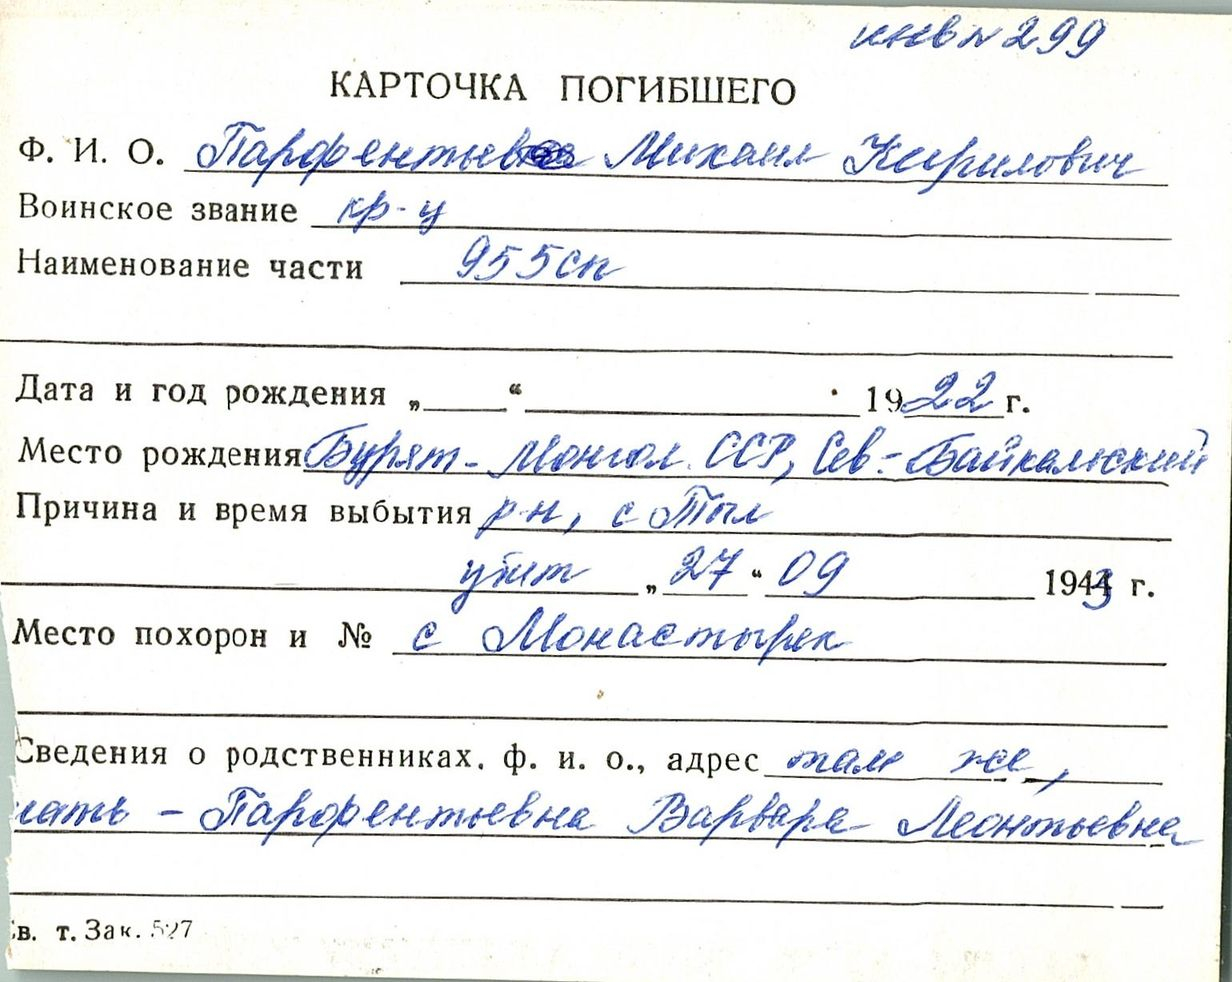 инв № 299
КАРТОЧКА ПОГИБШЕГО
Ф. И. О. Парфентьев Михаил Кирилович
Воинское звание кр-ц
Наименование части 955сп
Дата и год рождения „ “ 1922 г.
Место рождения Бурят-Монгол. ССР, Сев-Байкальский
Причина и время выбытия р-н, с Тыл
убит „27“ 09 1943 г.
Место похорон и № с Монастырек
Сведения о родственниках. ф. и. о., адрес там же,
мать - Парфентьевна Варвара Леонтьевна
в. т. Зак. 527